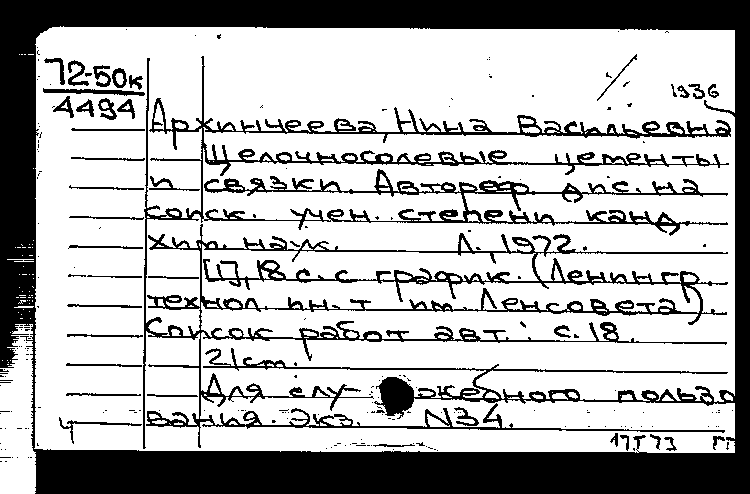 72-50к
4494
1936
Архинчеева, Нина Васильевна
Щелочносолевые цементы
и связки. Автореф. дис. на
соиск. учен. степени канд.
хим. наук. Л., 1972.
[1], 18 с. с график. (Ленингр.
технол. ин-т им. Ленсовета).
Список работ авт.: с. 18.
21 ст.
Для служебного пользо
вания. Экз. N34.
Ч
17 I 73 ГГ